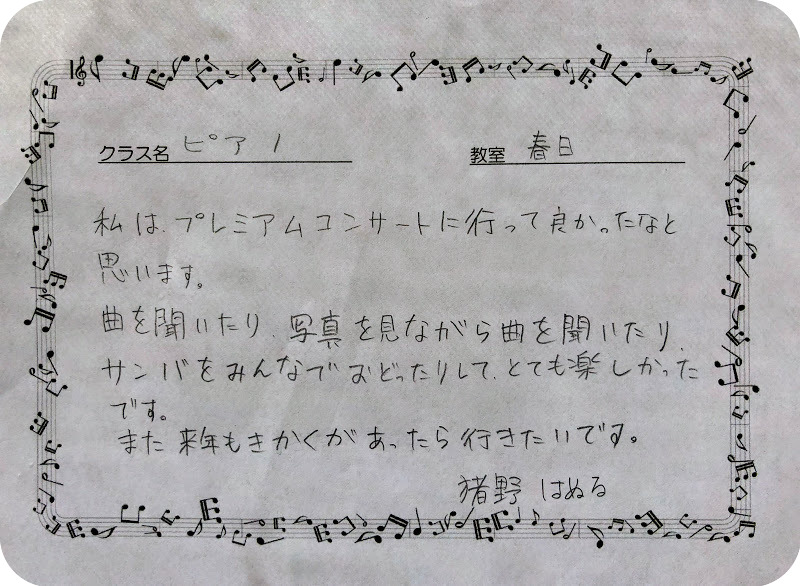 クラス名 ピアノ 教室 春日
私は、プレミアムコンサートに行って良かったなと
思います。
曲を聞いたり、写真を見ながら曲を聞いたり、
サンバをみんなでおどったりして、とても楽しかった
です。
また来年もきかくがあったら行きたいです。
猪野 はぬる